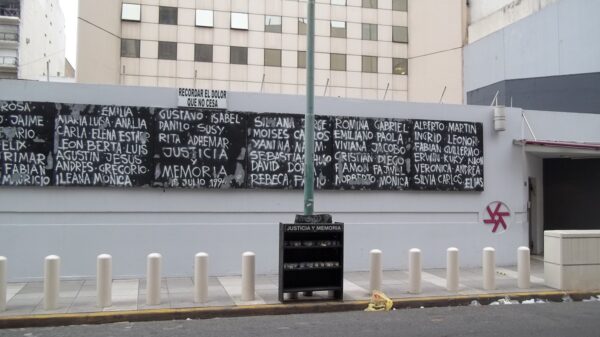 RECORDAR EL DOLOR
QUE NO CESA
ROSA
JAIME
MARIO
FELIX
FABIAN
MAURICIO
EMILIA
LUISA ANALIA
CARLA ELENA
LEON BERTA LUIS
AGUSTIN JESÚS
ANDRES GREGORIO
ILEANA MONICA
GUSTAVO ISABEL
DANILO SUSY
RITA ADHEMAR
JUSTICIA
MEMORIA
18 JULIO 1994
SILVANA JORGE
MOISES CARLOS
YANINA
SEBASTIAN
DAVID
REBECA
ROMINA GABRIEL
EMILIANO
VIVIANA JACOBO
CRISTIAN DIEGO
RAMON FAJWEL
NORBERTO MONICA
ALBERTO MARTIN
INGRID LEONOR
FABIAN GUILLERMO
ERWIN KUKY NAON
VERONICA ANDREA
SILVIA CARLOS ELIA
JUSTICIA Y MEMORIA